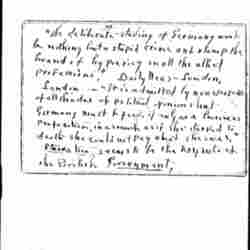 "The deliberate starving of Germany would
be nothing but a stupid crime and stamp the
brand of hypocrisy on all the allied
professions." Daily News - London.
London — It is admitted by
of all shades of political opinion that
Germany must be fed, if only as a business
proposition, inasmuch as if she starved to
death she could not pay what she owes.
seems to be the keynote of
the British Government.